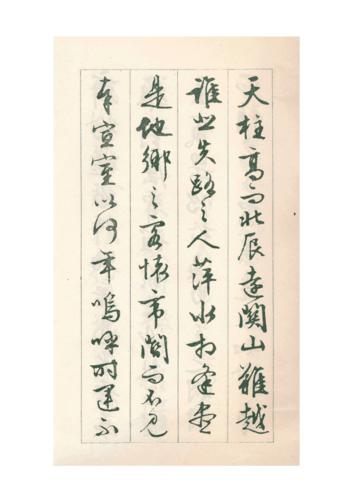 天柱高而北辰远关山难越
谁悲失路之人萍水相逢尽
是他乡之客怀帝阍而不见
奉宣室以何年呜呼时运不